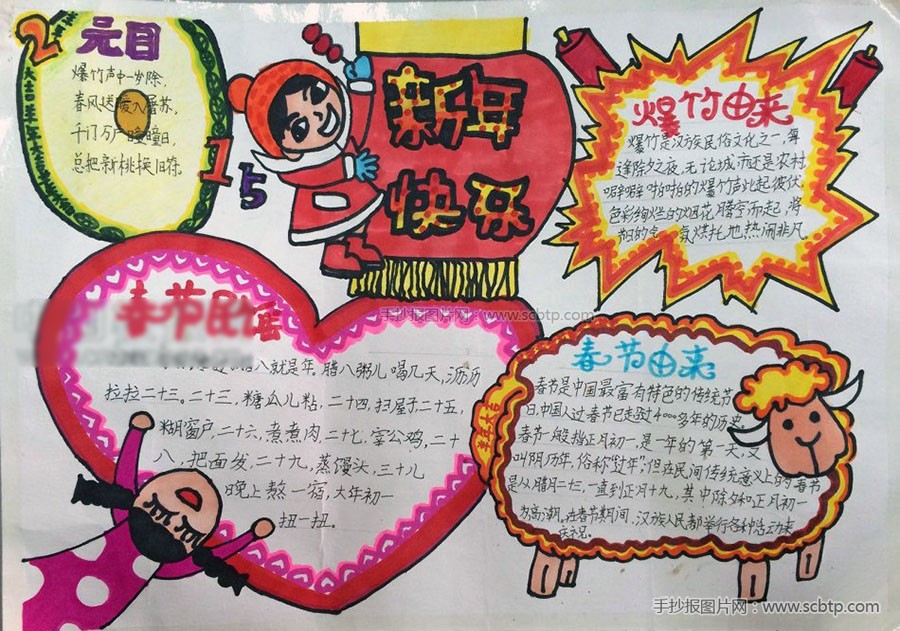 2
0
1
5
元日
爆竹声中一岁除,
春风送暖入屠苏,
千门万户曈曈日,
总把新桃换旧符.
新年
快乐
爆竹由来
爆竹是汉族民俗文化之一,每
逢除夕之夜,无论城市还是农村
噼噼啪啪的爆竹声此起彼伏
色彩绚烂的烟花腾空而起,将
节日的 氛烘托地热闹非凡.
手抄报图片网:www.scbtp.com
春节民俗
腊八就是年,腊八粥儿喝几天,沥沥
拉拉二十三。二十三,糖瓜儿粘,二十四,扫屋子二十五,
糊窗户,二十六,煮煮肉,二十七,宰公鸡,二十
八,把面发,二十九,蒸馒头,三十儿
晚上熬一宿,大年初一
扭一扭.
春节由来
春节是中国最富有特色的传统节
日,中国人过春节已走过4000多年的历史,
春节一般指正月初一,是一年的第一天,又
叫阴历年,俗称"过年",但在民间传统意义上的春节
是从腊月二三,一直到正月十九,其中除夕和正月初一
为高潮,在春节期间,汉族人民都举行各种活动来
庆祝.
手抄报图片网:www.scbtp.com